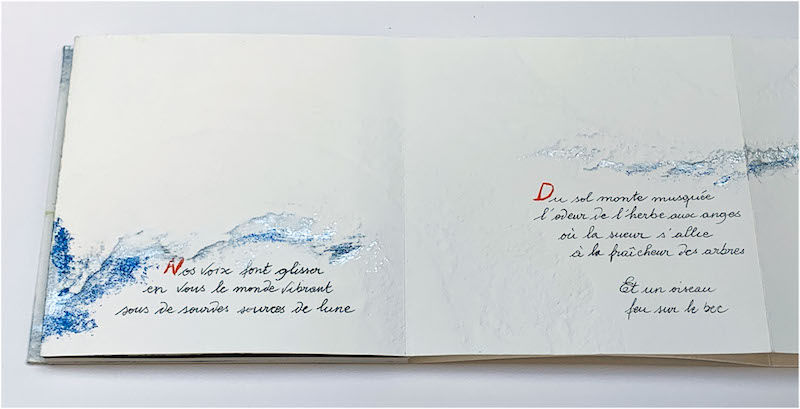 Nos voix font glisser
en vous le monde vibrant
sous de sourdes sources de lune
Du sol monte musquée
l'odeur de l'herbe aux anges
où la sueur s'allie
à la fraîcheur des arbres
Et un oiseau
feu sur le bec